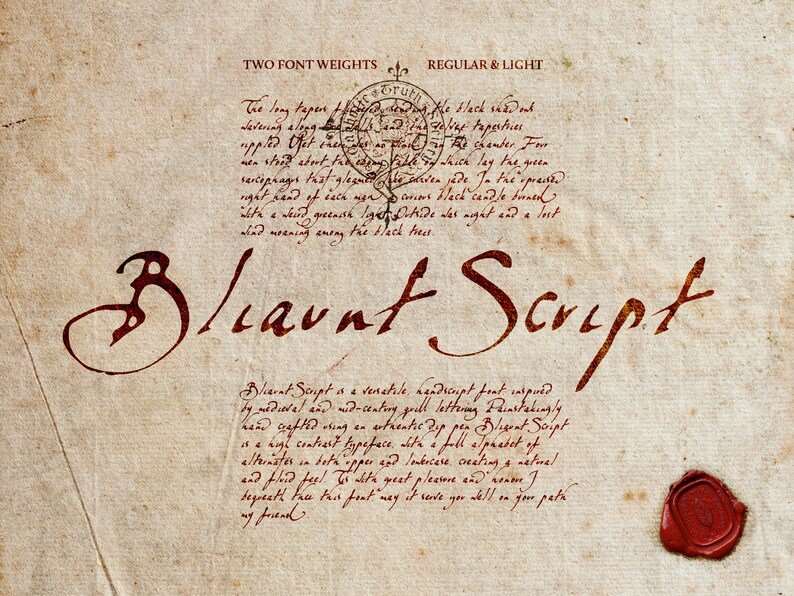 TWO FONT WEIGHTS REGULAR & LIGHT
Catholic Truth Society
The long tapers flickered, sending the black shadows
wavering along the walls, and the velvet tapestries
rippled. Yet there was no wind in the chamber. Four
men stood about the ebony table on which lay the green
sarcophagus that gleamed like carven jade. In the upraised
right hand of each man a curious black candle burned
with a weird greenish light. Outside was night and a lost
wind moaning among the black trees.
Bliaunt Script
Bliaunt Script is a versatile, handscript font, inspired
by medieval and mid-century quill lettering. Painstakingly
hand crafted using an authentic dip pen Bliaunt Script
is a high contrast typeface, with a full alphabet of
alternates in both upper and lowercase, creating a natural
and fluid feel. Tis with great pleasure and honour I
bequeath thee this font may it serve you well on your path
my friend.